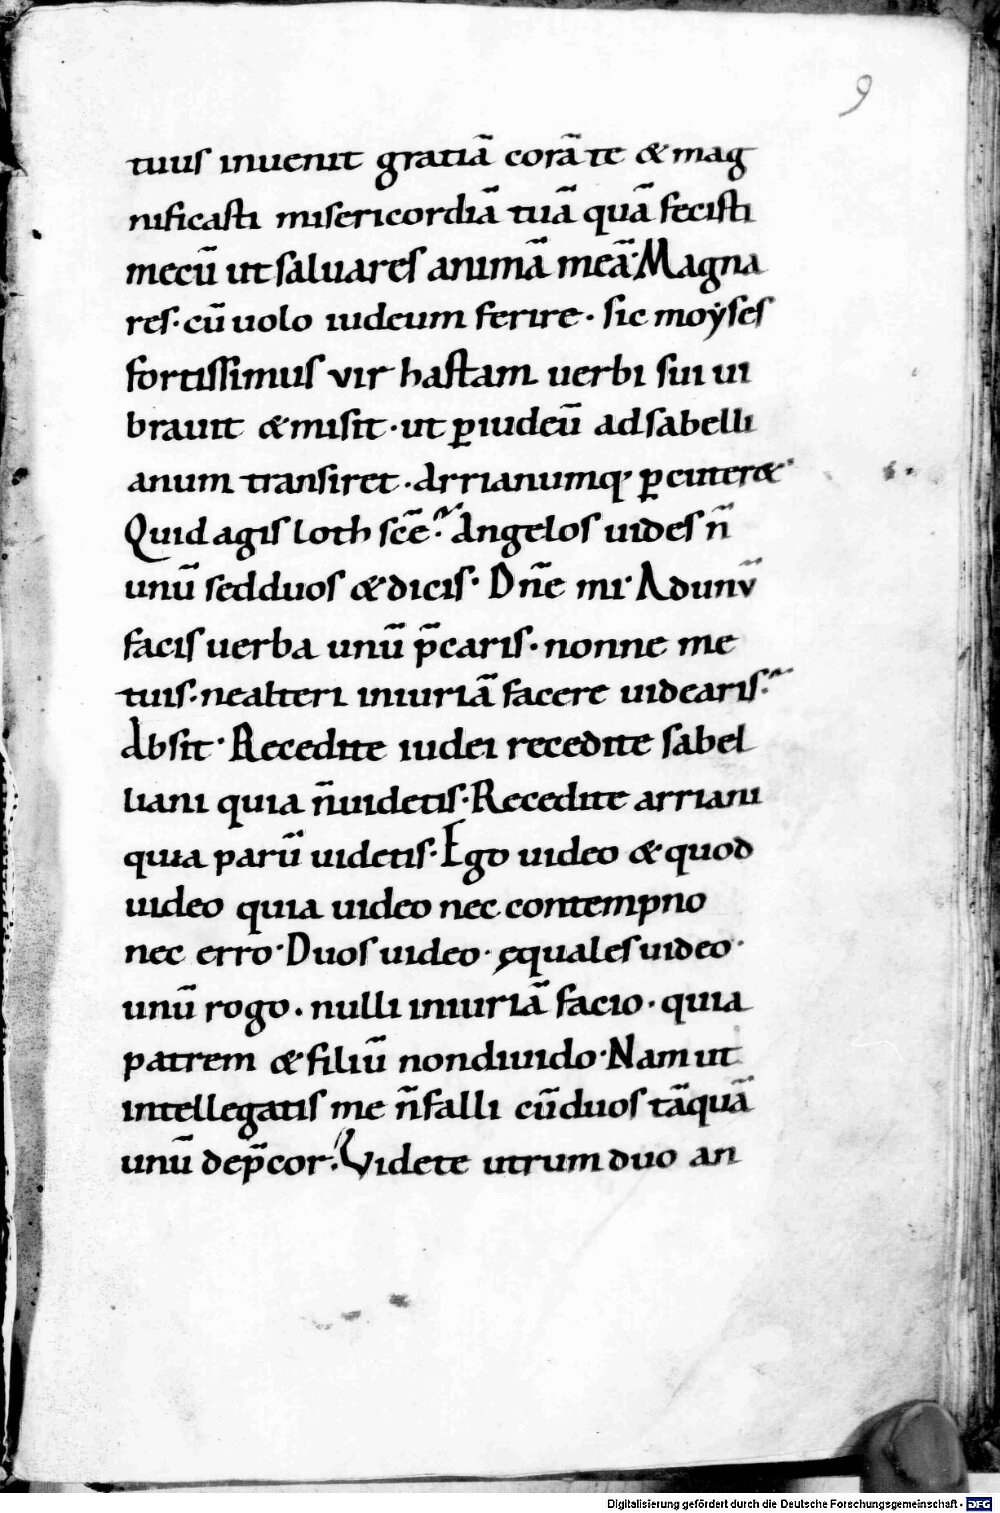 9
tuus inuenit gratiā corā te & mag
nificasti misericordiā tuā quā fecisti
mecū ut saluares animā meā· Magna
res· cū uolo iudeum ferire· sic moẏses
fortissimus vir hastam uerbi sui ui
brauit & misit· ut ꝑ iudeū ad sabelli
anum transiret· Arrianumq· ꝑcuteret&
Quid agis loth scē? Angelos uides n̄
unū sed duos & dicis· Dn̄e mi· Ad unv̄
facis uerba unū p̄caris· nonne me
tuis· ne alteri iniuriā facere uidearis?
Absit· Recedite iudei recedite sabel
liani quia n̄ uidetis· Recedite arriani
quia parū uidetis· Ego uideo & quod
uideo quia uideo nec contempno
nec erro· Duos uideo· ęquales uideo·
unū rogo· nulli iniuriā facio· quia
patrem & filiū non diuido· Nam ut
intellegatis me n̄ falli cū duos tāquā
unū dep̄cor· Videte utrum duo an
Digitalisierung gefördert durch die Deutsche Forschungsgemeinschaft - DFG